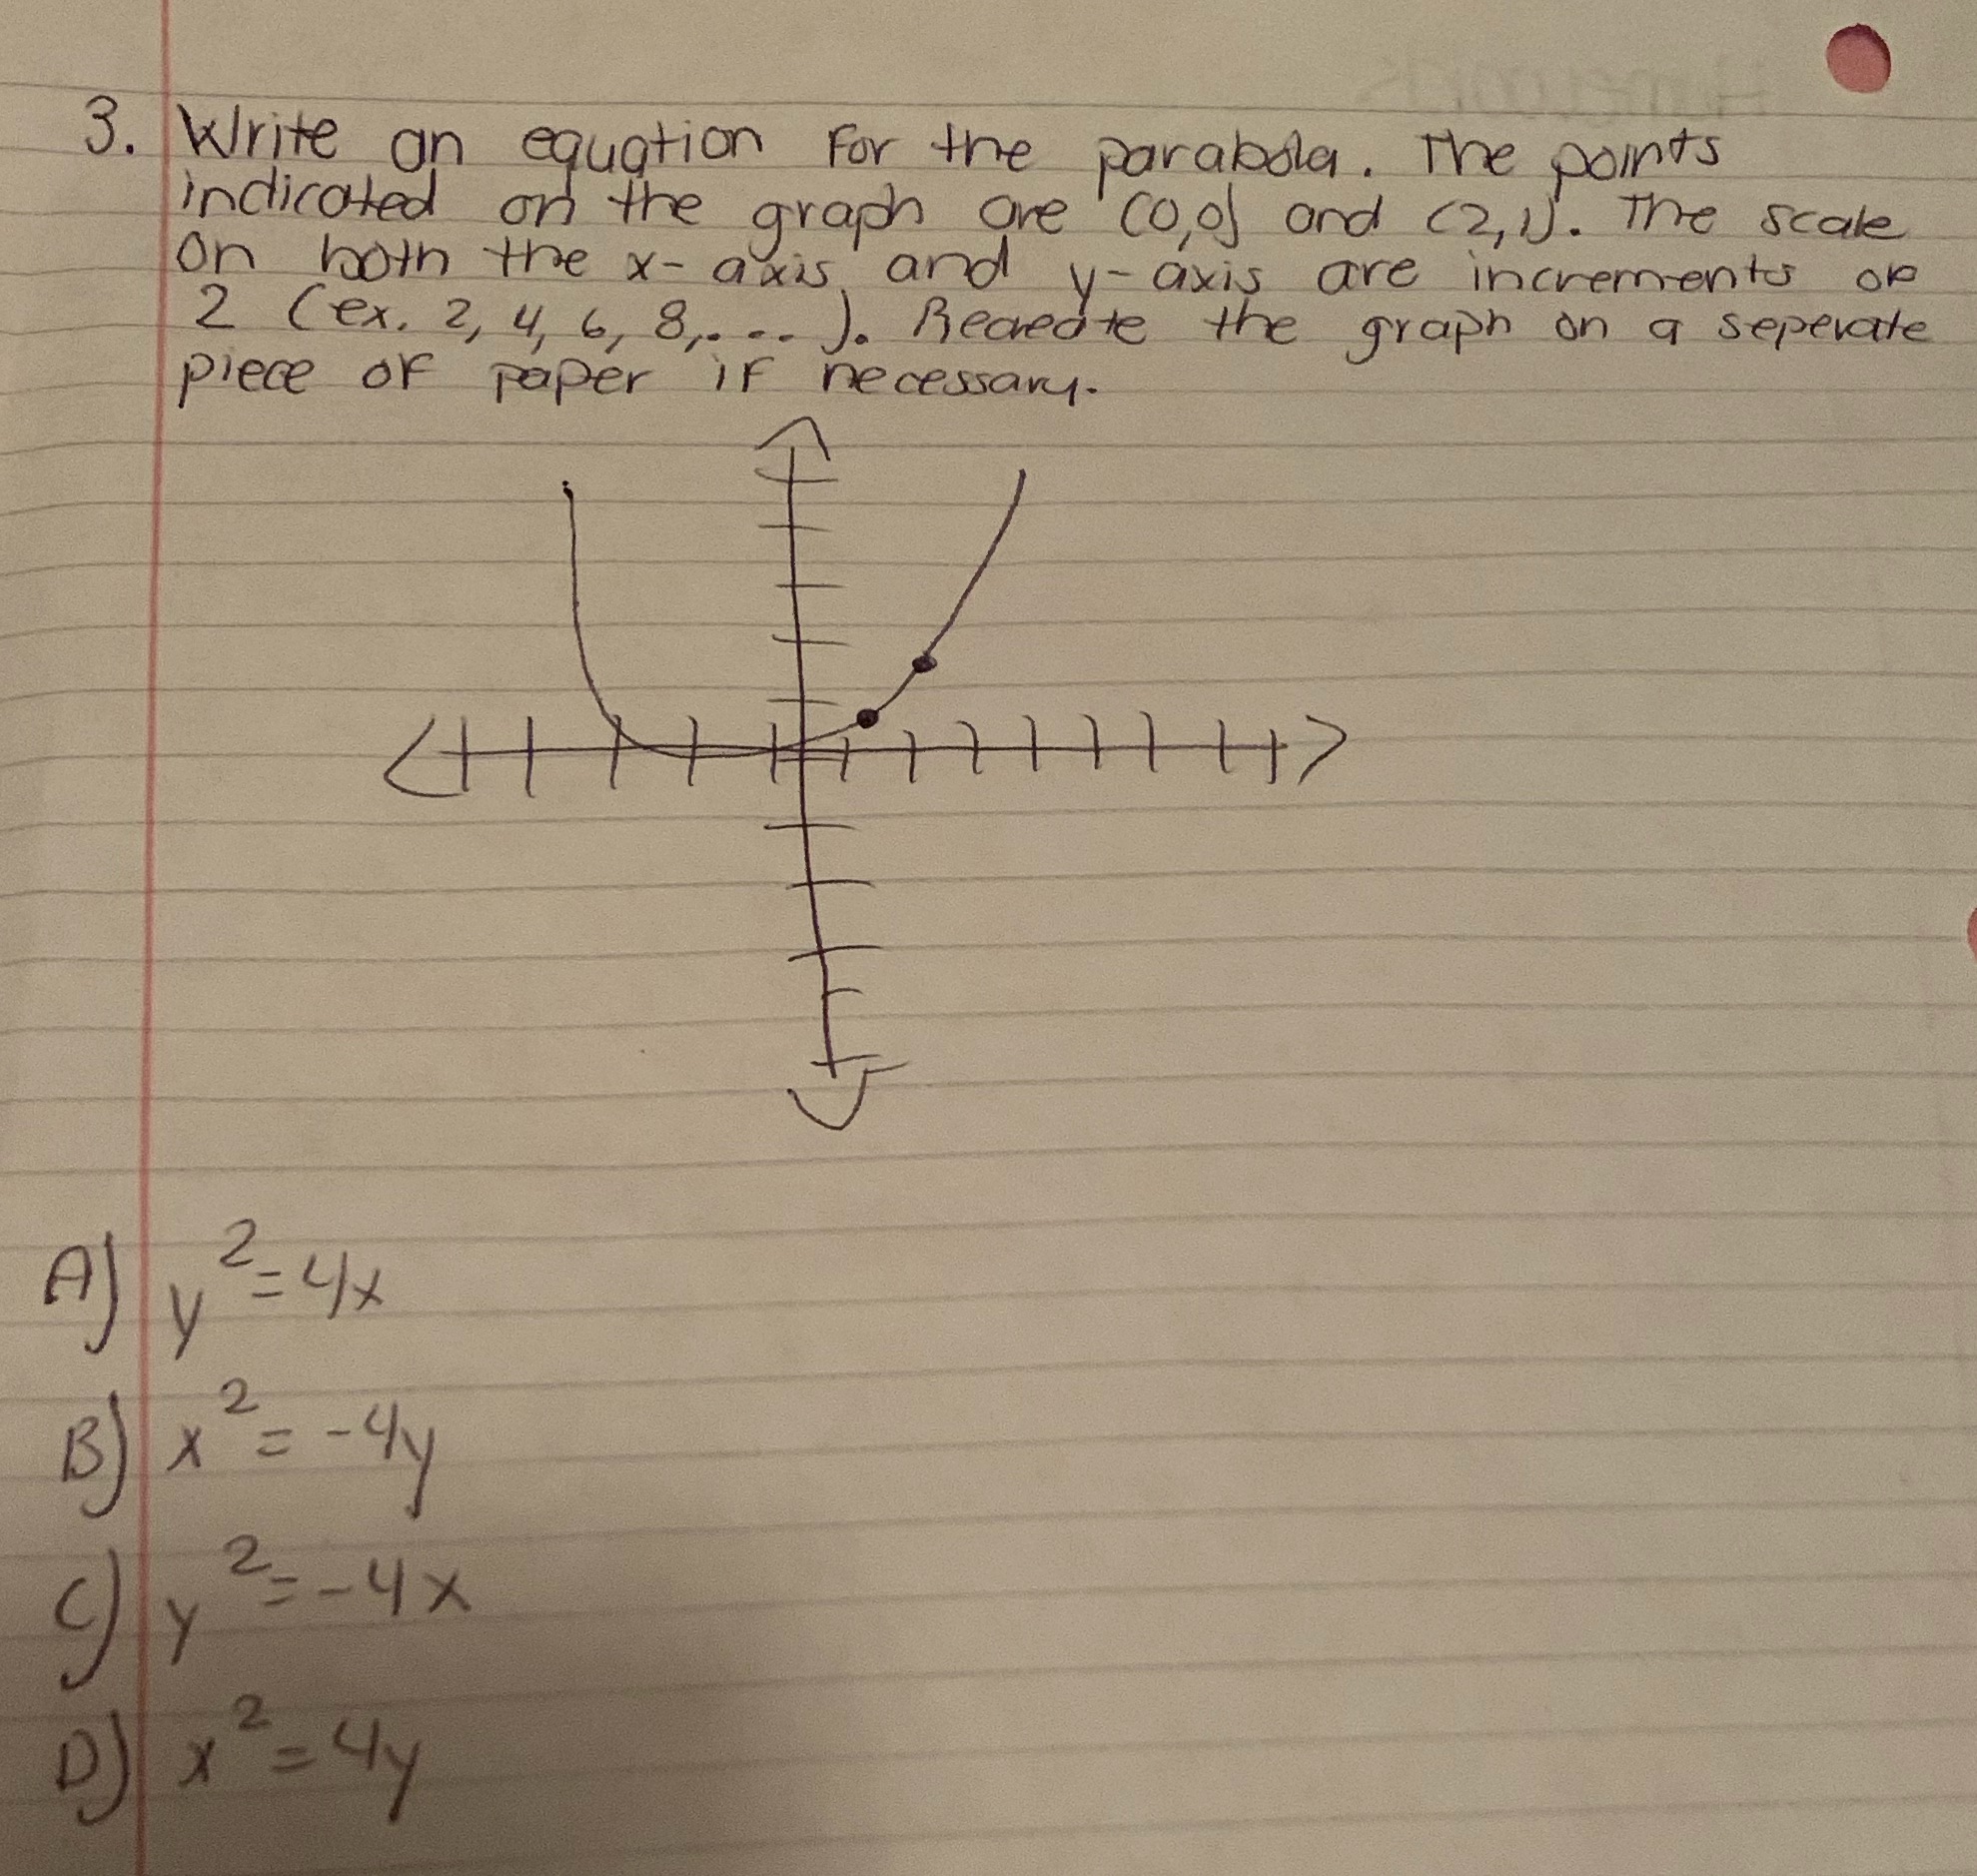 3. Write an equation for the parabola. The points
indicated on the graph are (0,0) and (2,1). The scale
on both the x-axis and y-axis are increments of
2 (ex. 2, 4, 6, 8,....). Recreate the graph on a seperate
piece of paper if necessary.
A) y²=4x
B) x²=-4y
C) y²=-4x
D) x²=4y